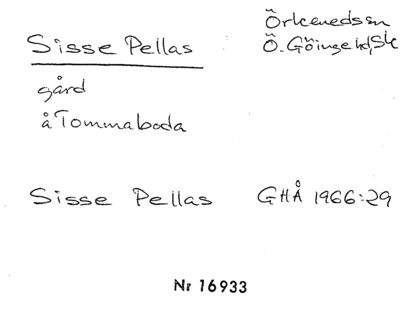 Sisse Pellas
Örkeneds sn
Ö. Göinge hd, Sk
gård
å Tommaboda
Sisse Pellas GHÅ 1966:29
Nr 16933